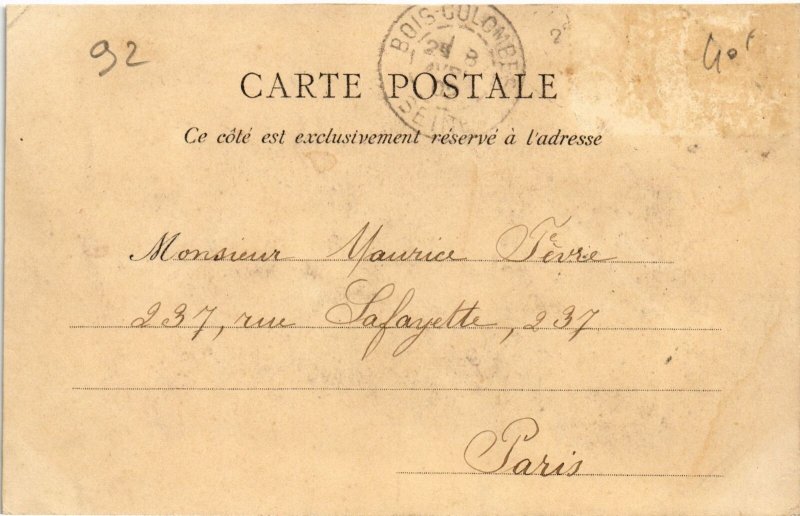 92
BOIS-COLOMBES
SEINE
CARTE POSTALE
Ce côté est exclusivement réservé à l'adresse
Monsieur Maurice Fèvre
237, rue Lafayette, 237
Paris